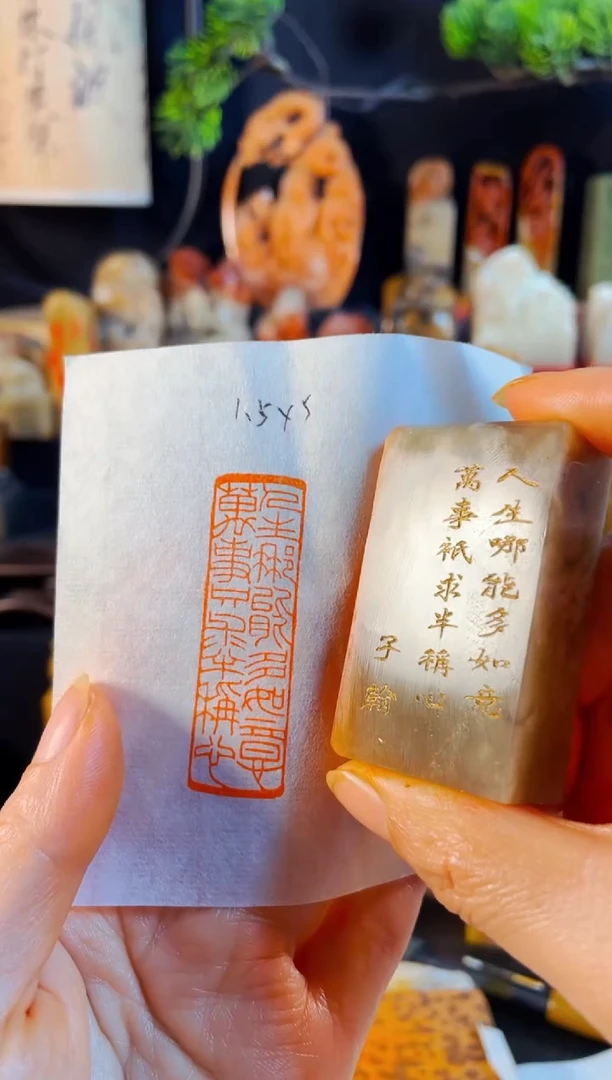 1.5×5
人生哪能多如意
萬事只求半稱心
人生哪能多如意
萬事祇求半稱心
子翰